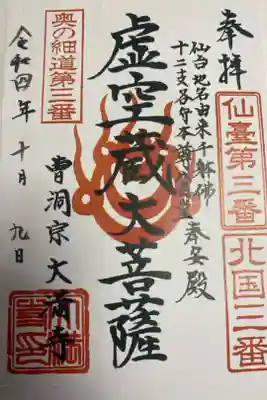 奉拝
仙臺第三番
北国三番
仙台地名由来千躰佛
十二支各守本尊
奉安殿
虚空蔵大菩薩
曹洞宗大満寺
奥の細道第三番
令和四年十月九日